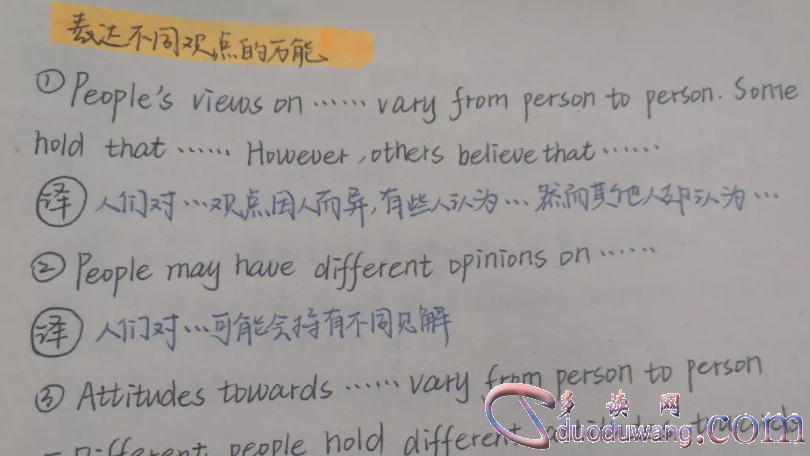 表达不同观点的万能
① People's views on …… vary from person to person. Some
hold that …… However, others believe that ……
译 人们对…观点因人而异,有些人认为… 然而其他人却认为…
② People may have different opinions on ……
译 人们对…可能会持有不同见解
③ Attitudes towards …… vary from person to person
= Different people hold different
多读网
duoduwang.com